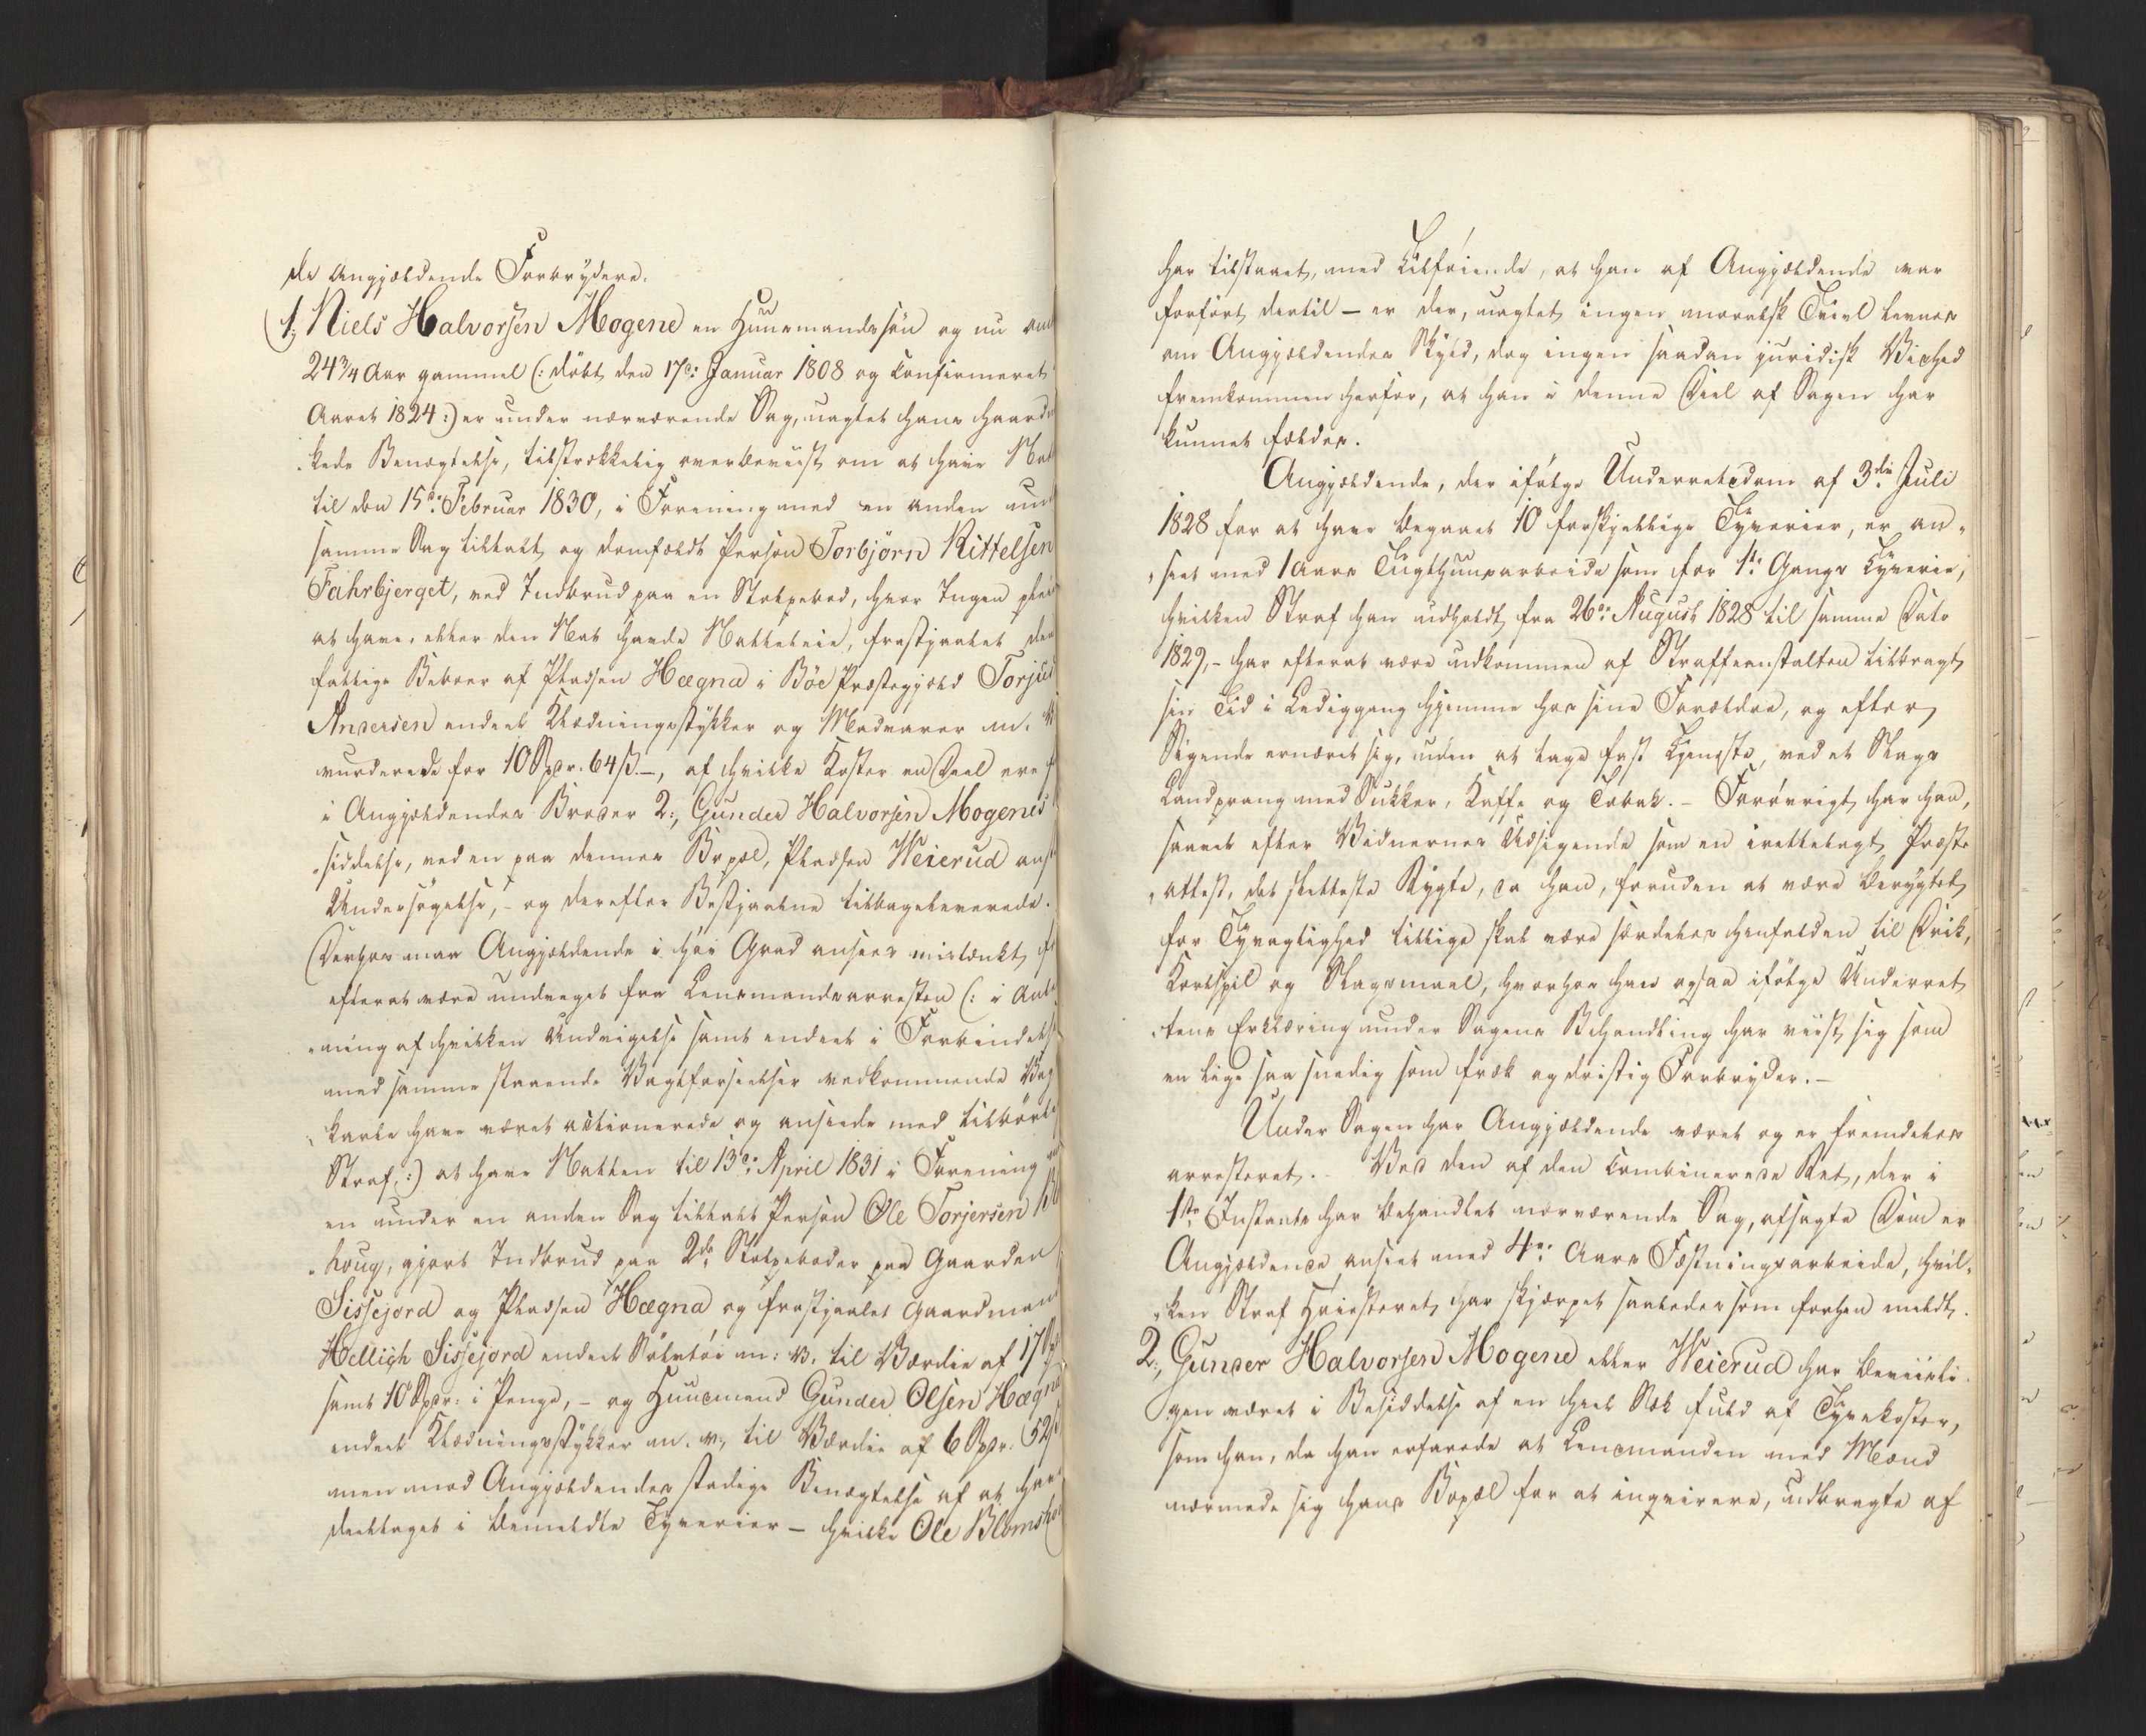 de angjældende Forbrydere.
1, Niels Halvorsen Mogene en Huusmandssøn og nu om
24¾ Aar gammel (: døbt den 17de Januar 1808 og Confirmeret
Aaret 1824 :) er under nærværende Sag, uagtet hans haard
kede Benægtelse, tilstrækkelig overbeviist om at have Nat
til den 15de Februar 1830, i Forening med en anden und
samme Sag tiltalt og domfældt Person Torbjørn Kittelsen
Fahrbjerget, ved Indbrud paa en Stolpebod, hvor Ingen plei
at have, eller den Nat havde Natteleie, frastjaalet den
fattige Beboer af Pladsen Hægna i Bøe Præstegjæld Torjus
Andersen endeel Klædningsstykker og Madvarer m. v.
vurderede for 10 Spdr. 64 ß. –, af hvilke Koster en Deel ere
i Angjældendes Broder 2, Gunder Halvorsen Mogenes
siddelse, ved en paa dennes Bopæl, Pladsen Weierud anst
Undersøgelse, – og derefter Bestjaalne tilbageleverede.
Derhos maa Angjældende i høi Grad ansees mistænkt, f
efterat være undveget fra Lensmandsarresten (: i Anl
ning af hvilken Undvigelse samt endeel i Forbindels
med samme staaende Vagtforseelser vedkommende Vag
karle have været actionerede og ansete med tilbørl
Straf, :) at have Natten til 13de April 1831 i Forening
en under en anden Sag tiltalt Person Ole Torjersen Bl
houg, gjort Indbrud paa 2de Stolpeboder paa Gaarden
Sissejord og Pladsen Hægna, og frastjaalet Gaardmand
Hellich Sissejord endeel Sølvtøi m: v. til Værdie af 17 Sp
samt 10 Spdr: i Penge, – og Huusmand Gunder Olsen Hægna
endeel Klædningsstykker m. v., til Værdie af 6 Spdr. 52 ß
men mod Angjældendes stadige Benægtelse af at have
deeltaget i bemeldte Tyverier – hvilke Ole Blomsho
har tilstaaet, med Tilføiende, at han af Angjældende var
forført dertil – er der, uagtet ingen moralsk Tvivl levnes
om Angjældendes Skyld, dog ingen saadan juridisk Vished
fremkommen herfor, at han i denne Deel af Sagen har
kunnet fældes.
Angjældende, der ifølge Underretsdom af 3die Juli
1828 for at have begaaet 10 forskjellige Tyverier, er an-
seet med 1 Aars Tugthuusarbeide som for 1ste Gangs Tyverie,
hvilken Straf han udholdt fra 26de August 1828 til samme Dato
1829, – har efterat være udkommen af Straffeanstalten tilbragt
sin Tid i Lediggang hjemme hos sine Forældre, og efter
Sigende ernæret sig, uden at tage fast Tjeneste, ved et Slags
Landprang med Sukker, Kaffe og Tobak. – Forøvrigt har han,
saavel efter Vidnernes Udsigende som en irettelagt Præste
attest, det sletteste Rygte, da han, foruden at være berygtet
for Tyvagtighed tillige skal være særdeles henfalden til Drik,
Kortspil og Slagsmaal, hvorhos han ogsaa ifølge Underret
tens Erklæring under Sagens Behandling har viist sig som
en lige saa snedig som fræk og dristig Forbryder. –
Under Sagen har Angjældende været og er fremdeles
arresteret. Ved den af den Combinerede Ret, der i
1ste Instants har behandlet nærværende Sag, afsagte Dom er
Angjældende anseet med 4re Aars Fæstningsarbeide, hvil-
ken Straf Høiesteret har skjærpet saaledes som forhen meldt.
2, Gunder Halvorsen Mogene eller Weierud har beviisli
gen været i Besiddelse af en heel Sæk fuld af Tyvekoster,
som han, da han erfarede at Lensmanden med Mænd
nærmede sig hans Bopæl for at inqvirere, udbragte af